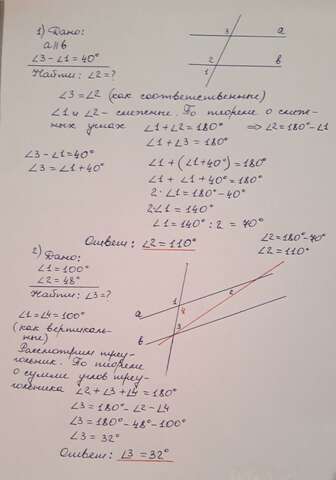 1) Дано:
a∥b
∠3 - ∠1 = 40°
Найти: ∠2 = ?
3
a
2
b
1
∠3 = ∠2 (как соответственные)
∠1 и ∠2 - смежные. По теореме о смеж-
ных углах ∠1 + ∠2 = 180° ⇒ ∠2 = 180° - ∠1
∠1 + ∠3 = 180°
∠3 - ∠1 = 40°
∠3 = ∠1 + 40°
∠1 + (∠1 + 40°) = 180°
∠1 + ∠1 + 40° = 180°
2·∠1 = 180° - 40°
2∠1 = 140°
∠1 = 140° : 2 = 70°
∠2 = 180° - 70°
∠2 = 110°
Ответ: ∠2 = 110°
2) Дано:
∠1 = 100°
∠2 = 48°
Найти: ∠3 = ?
1
2
4
a
3
b
∠1 = ∠4 = 100°
(как вертикаль-
ные)
Рассмотрим треу-
гольник. По теореме
о сумме углов треу-
гольника ∠2 + ∠3 + ∠4 = 180°
∠3 = 180° - ∠2 - ∠4
∠3 = 180° - 48° - 100°
∠3 = 32°
Ответ: ∠3 = 32°